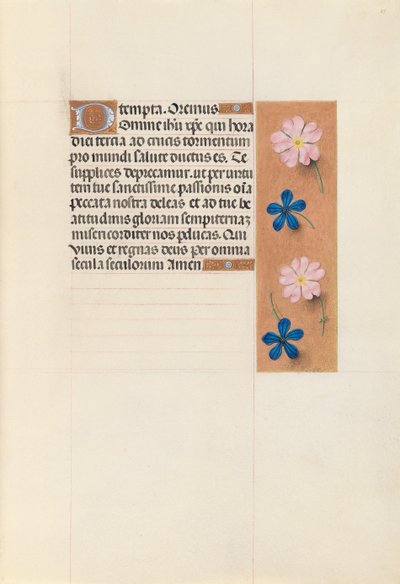 tempta. Oremus
Domine ihu xpe qui hora
diei tercia ad crucis tormentum
pro mundi salute ductus es. Te
supplices deprecamur. ut per uirtu
tem tue sanctissime passionis oīa
peccata nostra deleas et ad tue be
atitudinis gloriam sempiternaꝫ
misericorditer nos pducas. Qui
uiuis et regnas deus per omnia
secula seculorum Amen